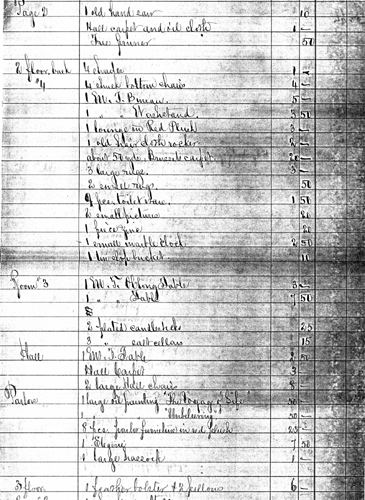 Page 2 1 old hand saw 10
Hall carpet and oil cloth
50
2 floor back 4 shades 1 –
#4 4 chairs 4 –
1 M. T. Bureau 5 –
1 " " Washstand 3 50
1 lounge in Red Plush 3 –
1 old hair cloth rocker 2 –
about 50 yds. Brussels carpet 20 –
3 large rugs 3 –
2 small rugs 50
9 pcs. toilet ware 1 50
2 small pictures 20
1 20
1 small marble clock 2 50
1 tin slop bucket 10
Room #3 1 M. T. Table 3 –
1 " " Table 7 50
2 plated candlesticks 25
3 " salt cellars 15
Hall 1 M. T. Table 2 50
Hall Carpet 3 –
2 large Hall chairs 8 –
Parlor 1 large oil painting "The Voyage of Life" 50 –
1 " " 50 –
8 pcs. Parlor furniture in red plush 25 –
1 7 50
1 large hassock 1 –
3 floor 1 feather bolster & 2 pillows 6 –